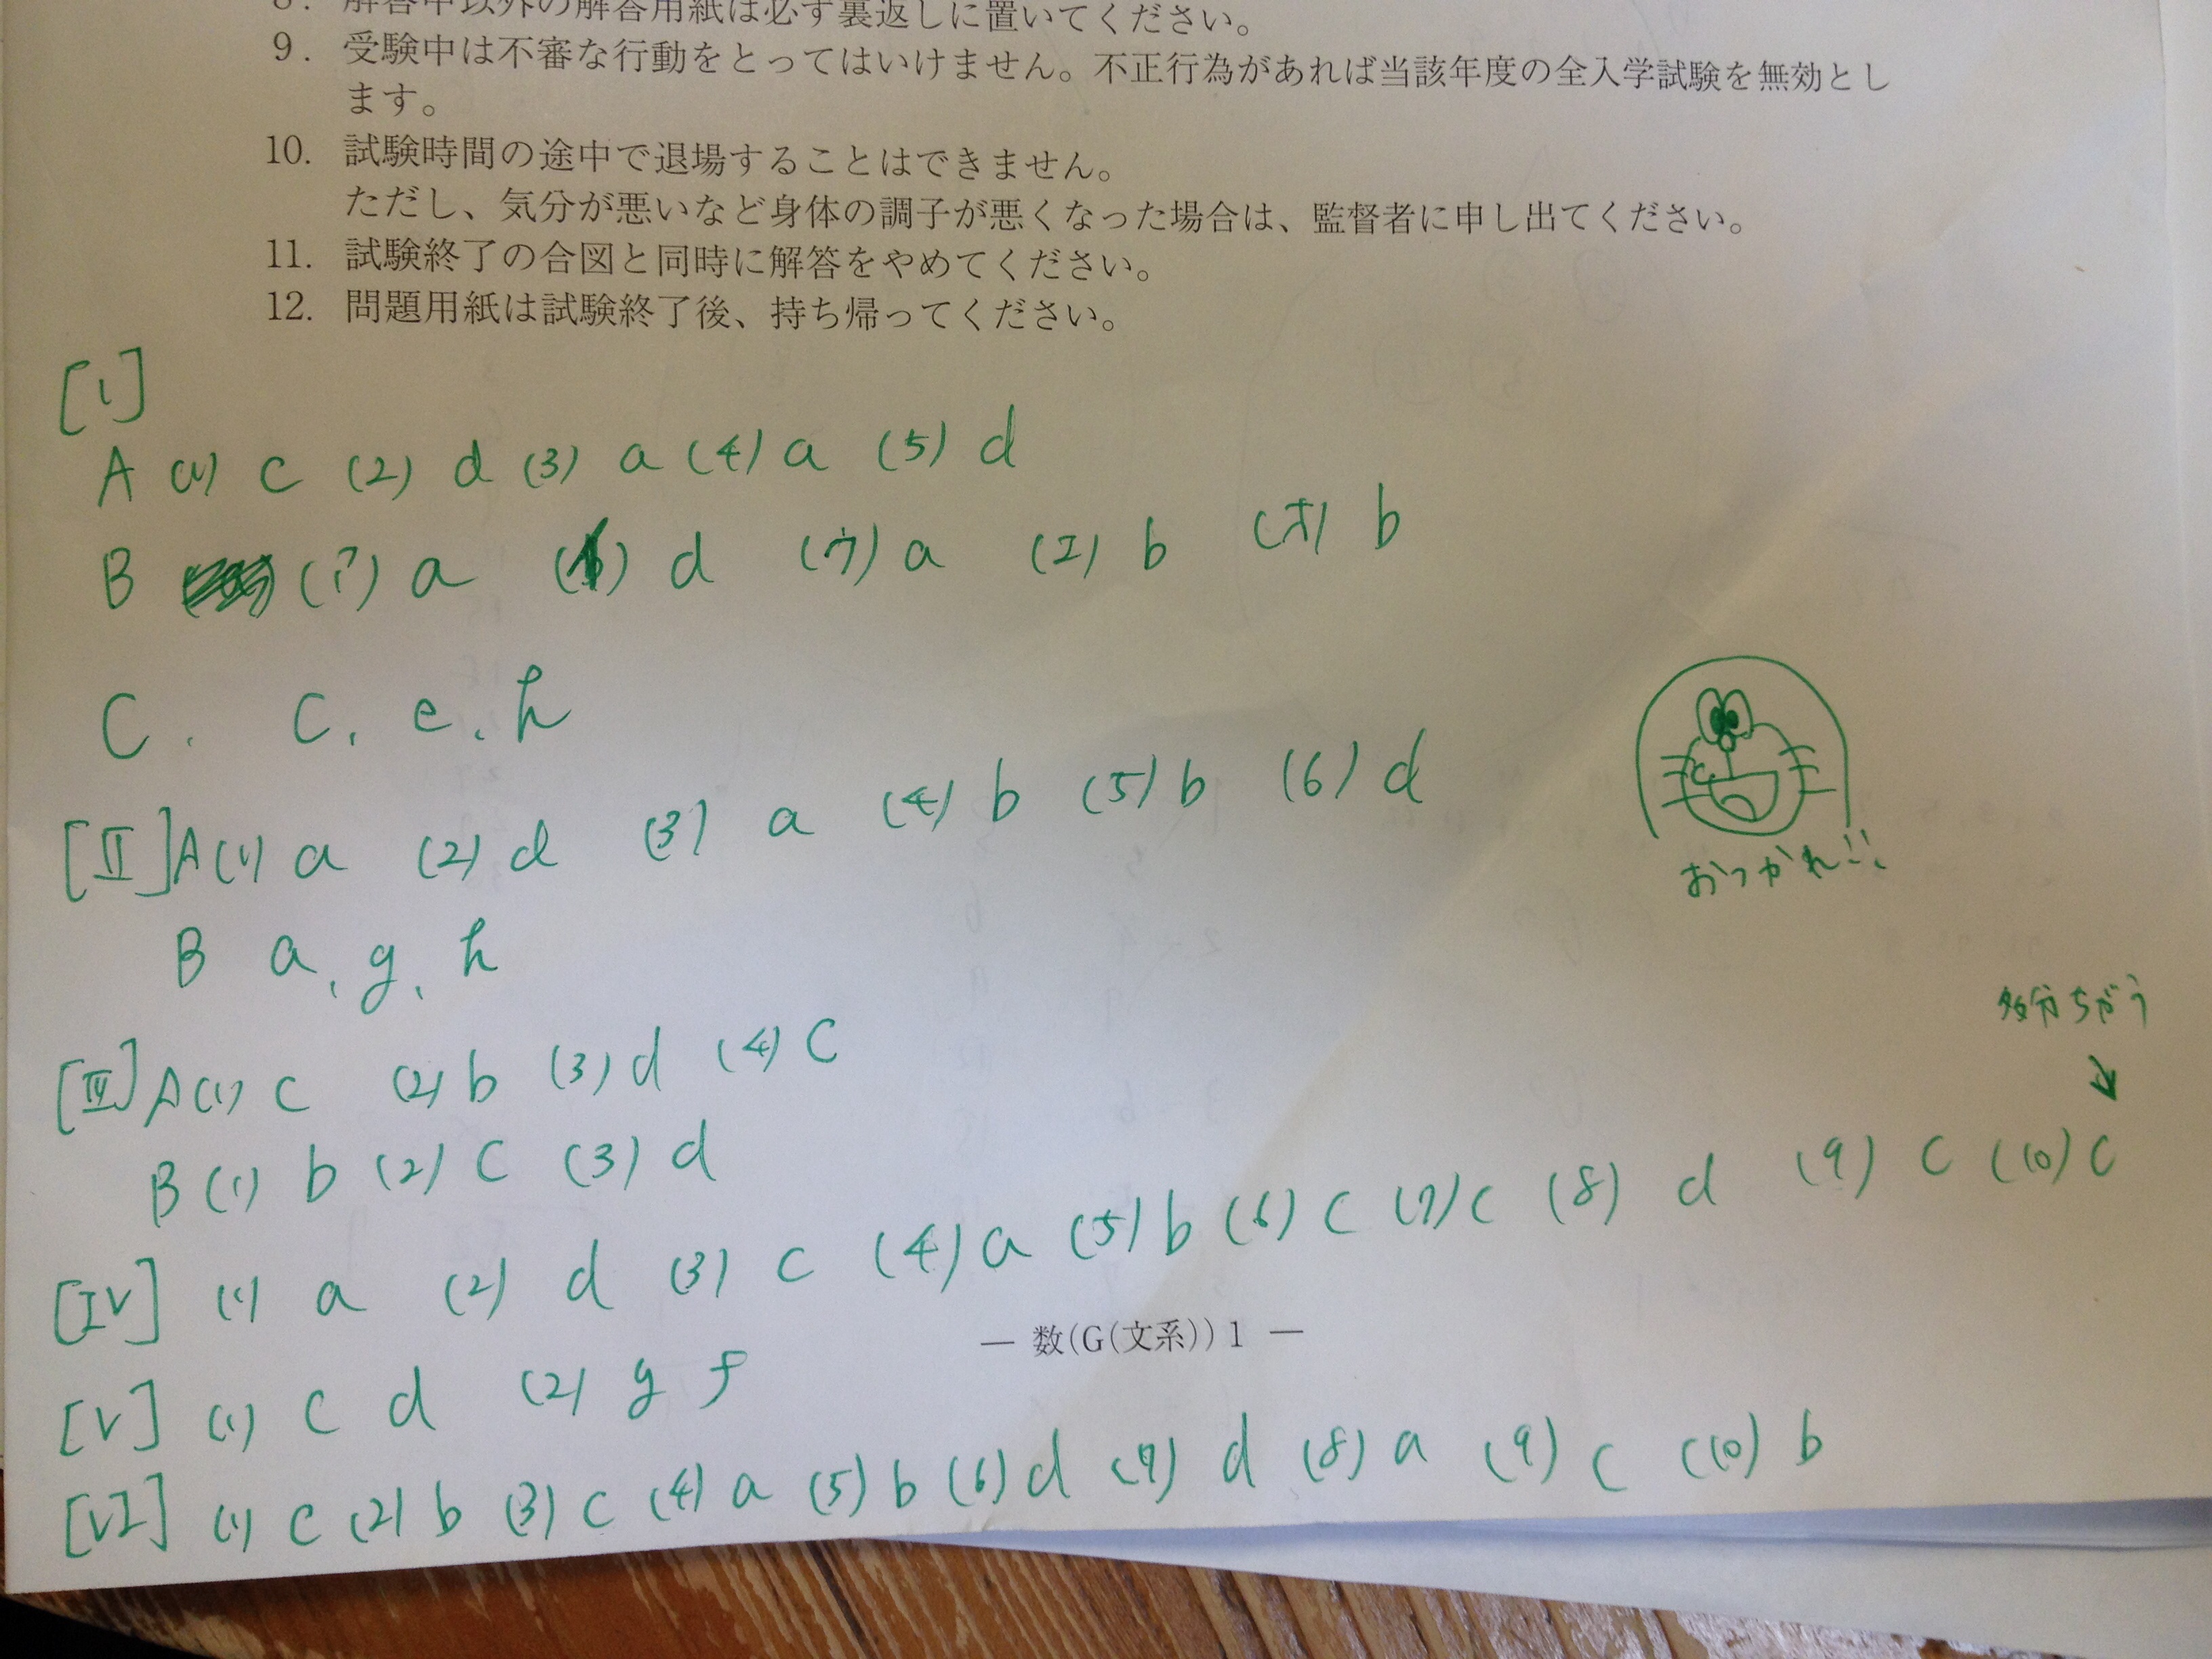 8. 解答中以外の解答用紙は必ず裏返しに置いてください。
9. 受験中は不審な行動をとってはいけません。不正行為があれば当該年度の全入学試験を無効とし
ます。
10. 試験時間の途中で退場することはできません。
ただし、気分が悪いなど身体の調子が悪くなった場合は、監督者に申し出てください。
11. 試験終了の合図と同時に解答をやめてください。
12. 問題用紙は試験終了後、持ち帰ってください。
[I]
A (1) c (2) d (3) a (4) a (5) d
B (ア) a (イ) d (ウ) a (エ) b (オ) b
C. c, e, h
[II] A (1) a (2) d (3) a (4) b (5) b (6) d
おつかれ!!
B a, g, h
[III] A (1) c (2) b (3) d (4) c
多分ちがう
↓
B (1) b (2) c (3) d
[IV] (1) a (2) d (3) c (4) a (5) b (6) c (7) c (8) d (9) c (10) c
— 数(G(文系)) 1 —
[V] (1) c d (2) g f
[VI] (1) c (2) b (3) c (4) a (5) b (6) d (7) d (8) a (9) c (10) b